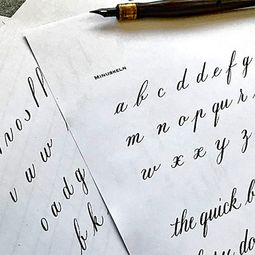 Minuskeln
a b c d d e f g
m n o p q u r s
w x x y z
the quick b
v u w
o a d g
b k